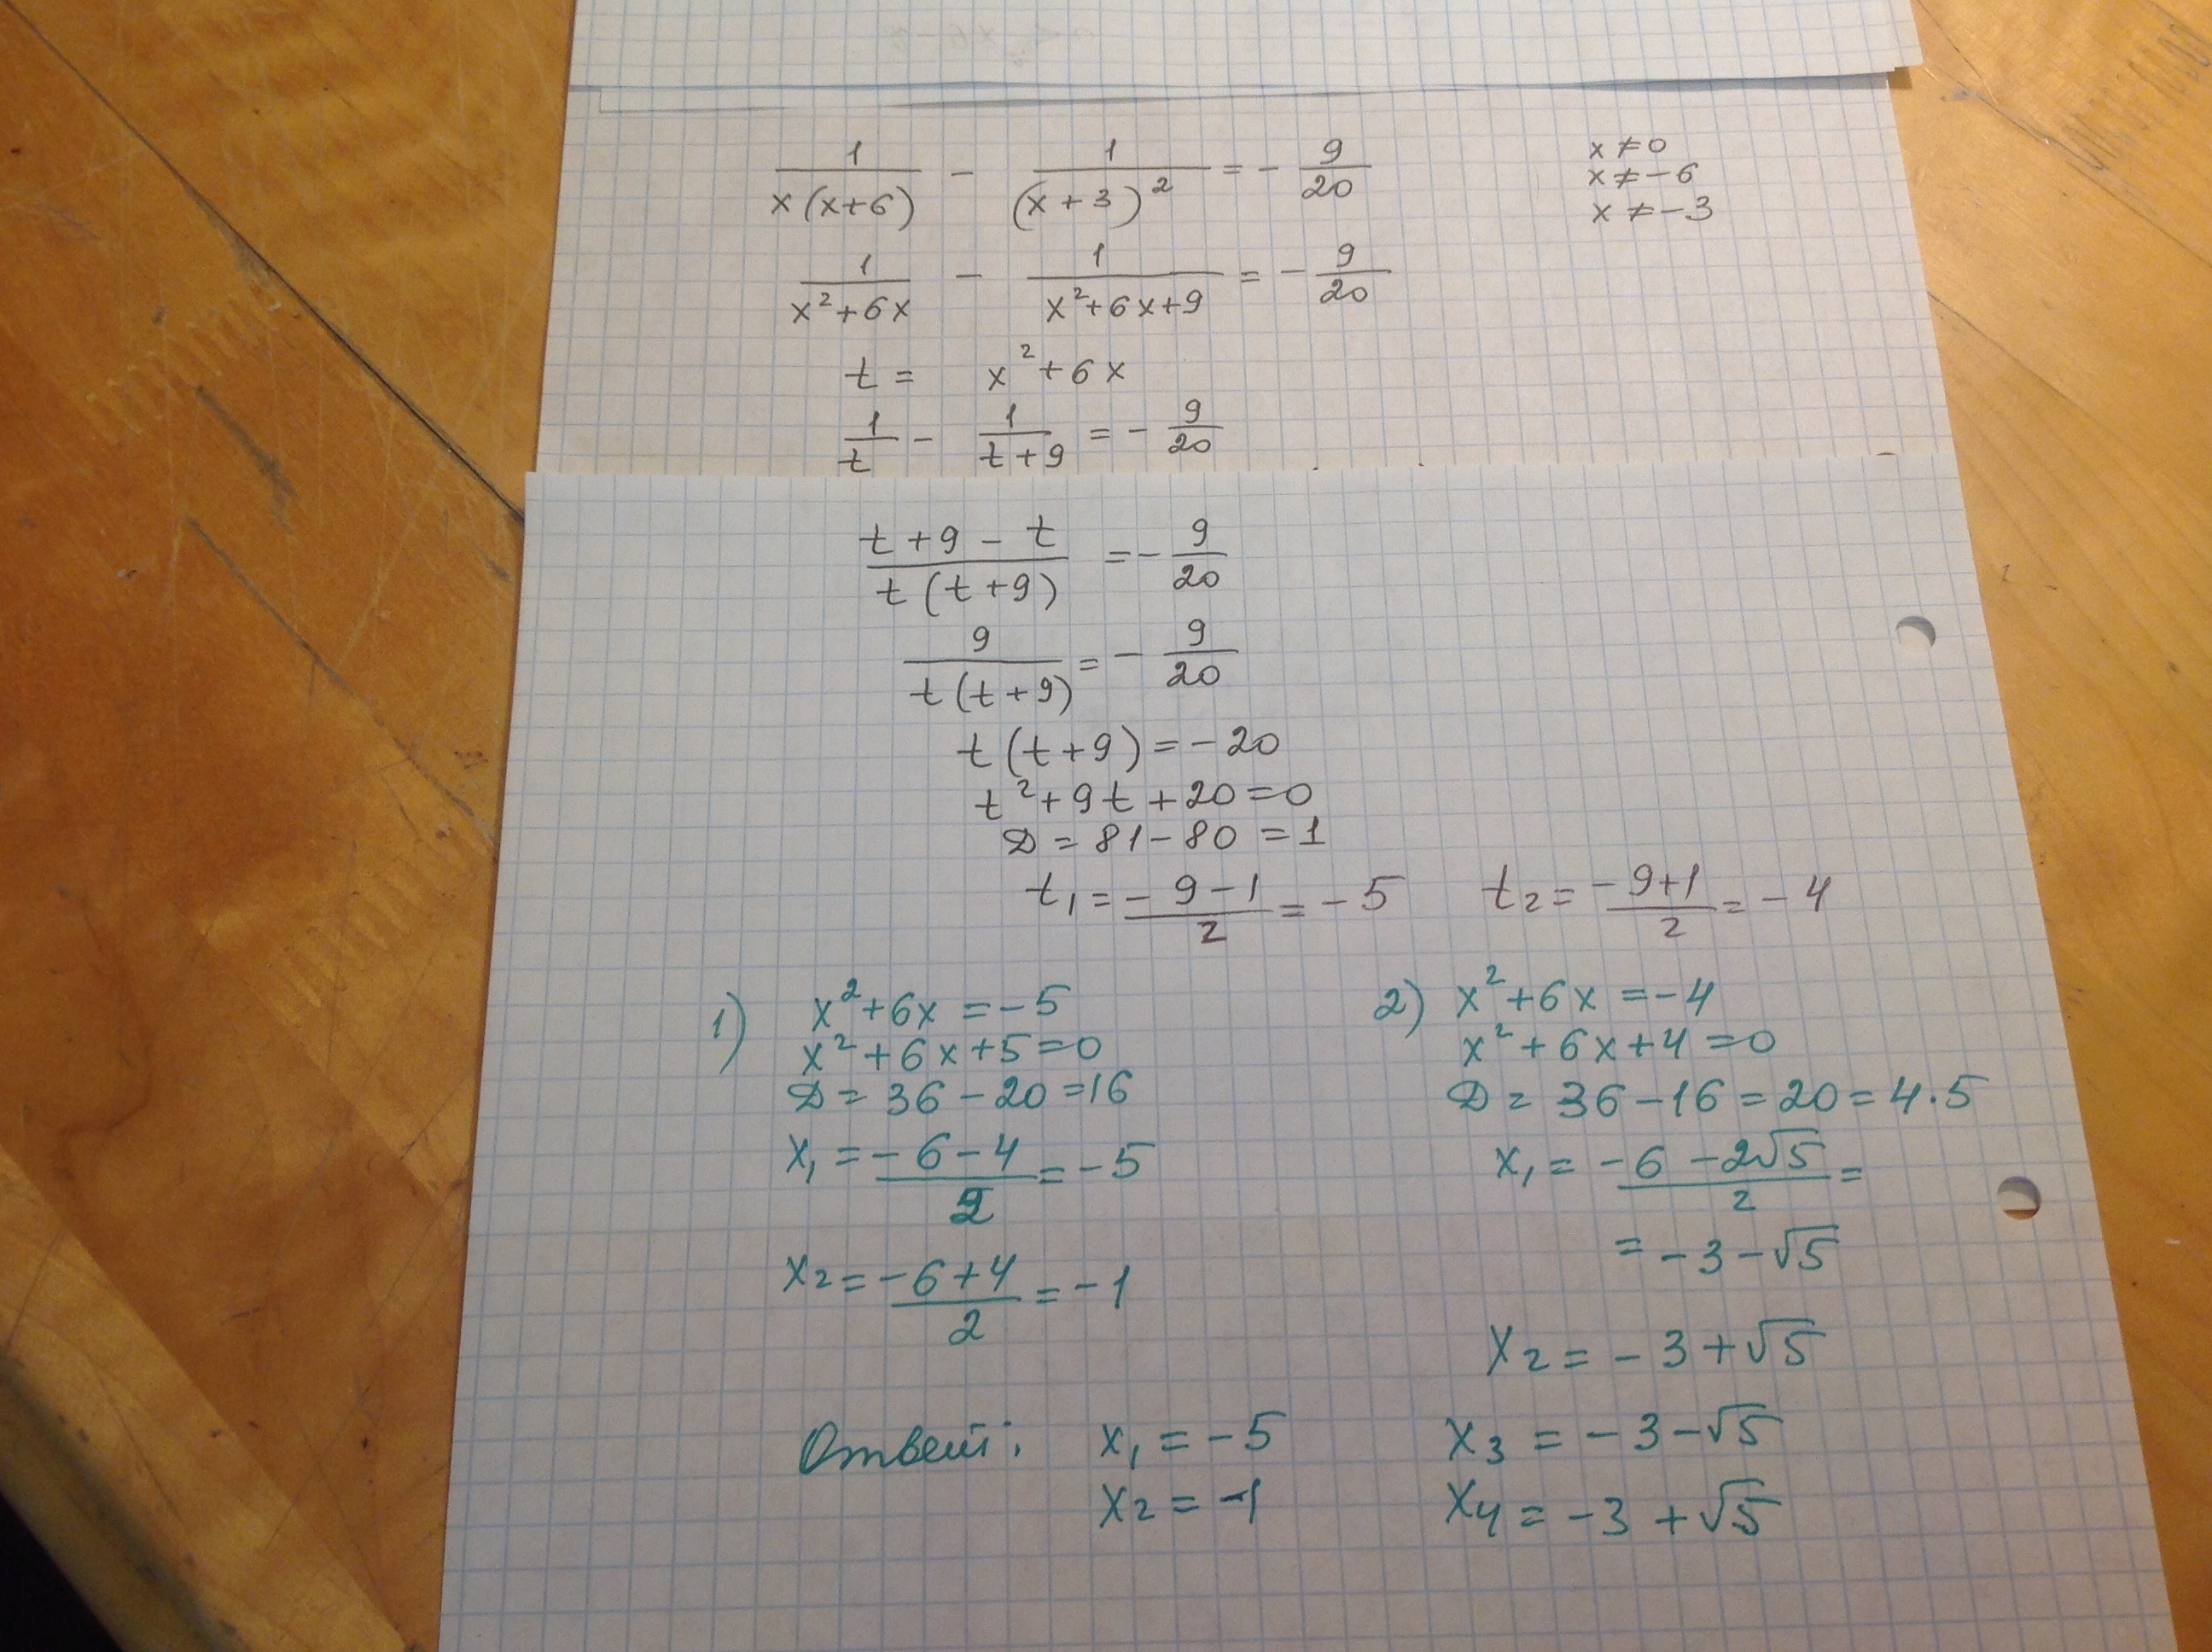 1/(x(x+6)) - 1/(x+3)² = - 9/20
x ≠ 0
x ≠ -6
x ≠ -3
1/(x²+6x) - 1/(x²+6x+9) = - 9/20
t = x²+6x
1/t - 1/(t+9) = - 9/20
(t+9-t)/(t(t+9)) = - 9/20
9/(t(t+9)) = - 9/20
t(t+9) = -20
t²+9t+20=0
D = 81-80 = 1
t₁ = (-9-1)/2 = -5 t₂ = (-9+1)/2 = -4
1) x²+6x = -5
x²+6x+5=0
D = 36-20=16
x₁ = (-6-4)/2 = -5
x₂ = (-6+4)/2 = -1
2) x²+6x = -4
x²+6x+4=0
D = 36-16=20=4·5
x₁ = (-6-2√5)/2 =
= -3-√5
x₂ = -3+√5
Ответ: x₁ = -5 x₃ = -3-√5
x₂ = -1 x₄ = -3+√5